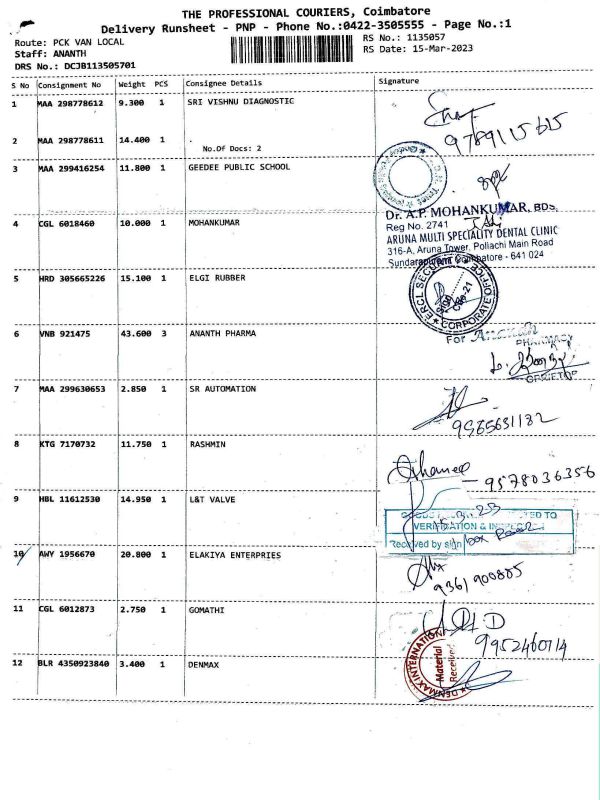 THE PROFESSIONAL COURIERS, Coimbatore
Delivery Runsheet - PNP - Phone No.:0422-3505555 - Page No.:1
Route: PCK VAN LOCAL
Staff: ANANTH
DRS No.: DCJB113505701
RS No.: 1135057
RS Date: 15-Mar-2023
S No Consignment No Weight PCS Consignee Details Signature
1 MAA 298778612 9.300 1 SRI VISHNU DIAGNOSTIC
9789115615
2 MAA 298778611 14.400 1 .
No.Of Docs: 2
3 MAA 299416254 11.800 1 GEEDEE PUBLIC SCHOOL
4 CGL 6018460 10.000 1 MOHANKUMAR
Dr. A.P. MOHANKUMAR, BDS.
Reg No. 2741
ARUNA MULTI SPECIALITY DENTAL CLINIC
316-A, Aruna Tower, Pollachi Main Road
Sundarapuram Coimbatore - 641 024
5 HRD 305665226 15.100 1 ELGI RUBBER
ERCL SECURITY OFFICE
CORPORATE
6 VNB 921475 43.600 3 ANANTH PHARMA
For Ananth
PHARMACY
7 MAA 299630653 2.850 1 SR AUTOMATION
8 KTG 7170732 11.750 1 RASHMIN
9578036356
9 HBL 11612530 14.950 1 L&T VALVE
TED TO
VERIFICATION & INSPECTION
Received by sign
10 AWY 1956670 20.800 1 ELAKIYA ENTERPRIES
9361900885
11 CGL 6012873 2.750 1 GOMATHI
12 BLR 4350923840 3.400 1 DENMAX
DENMAX INTERNATIONAL
Material
Received